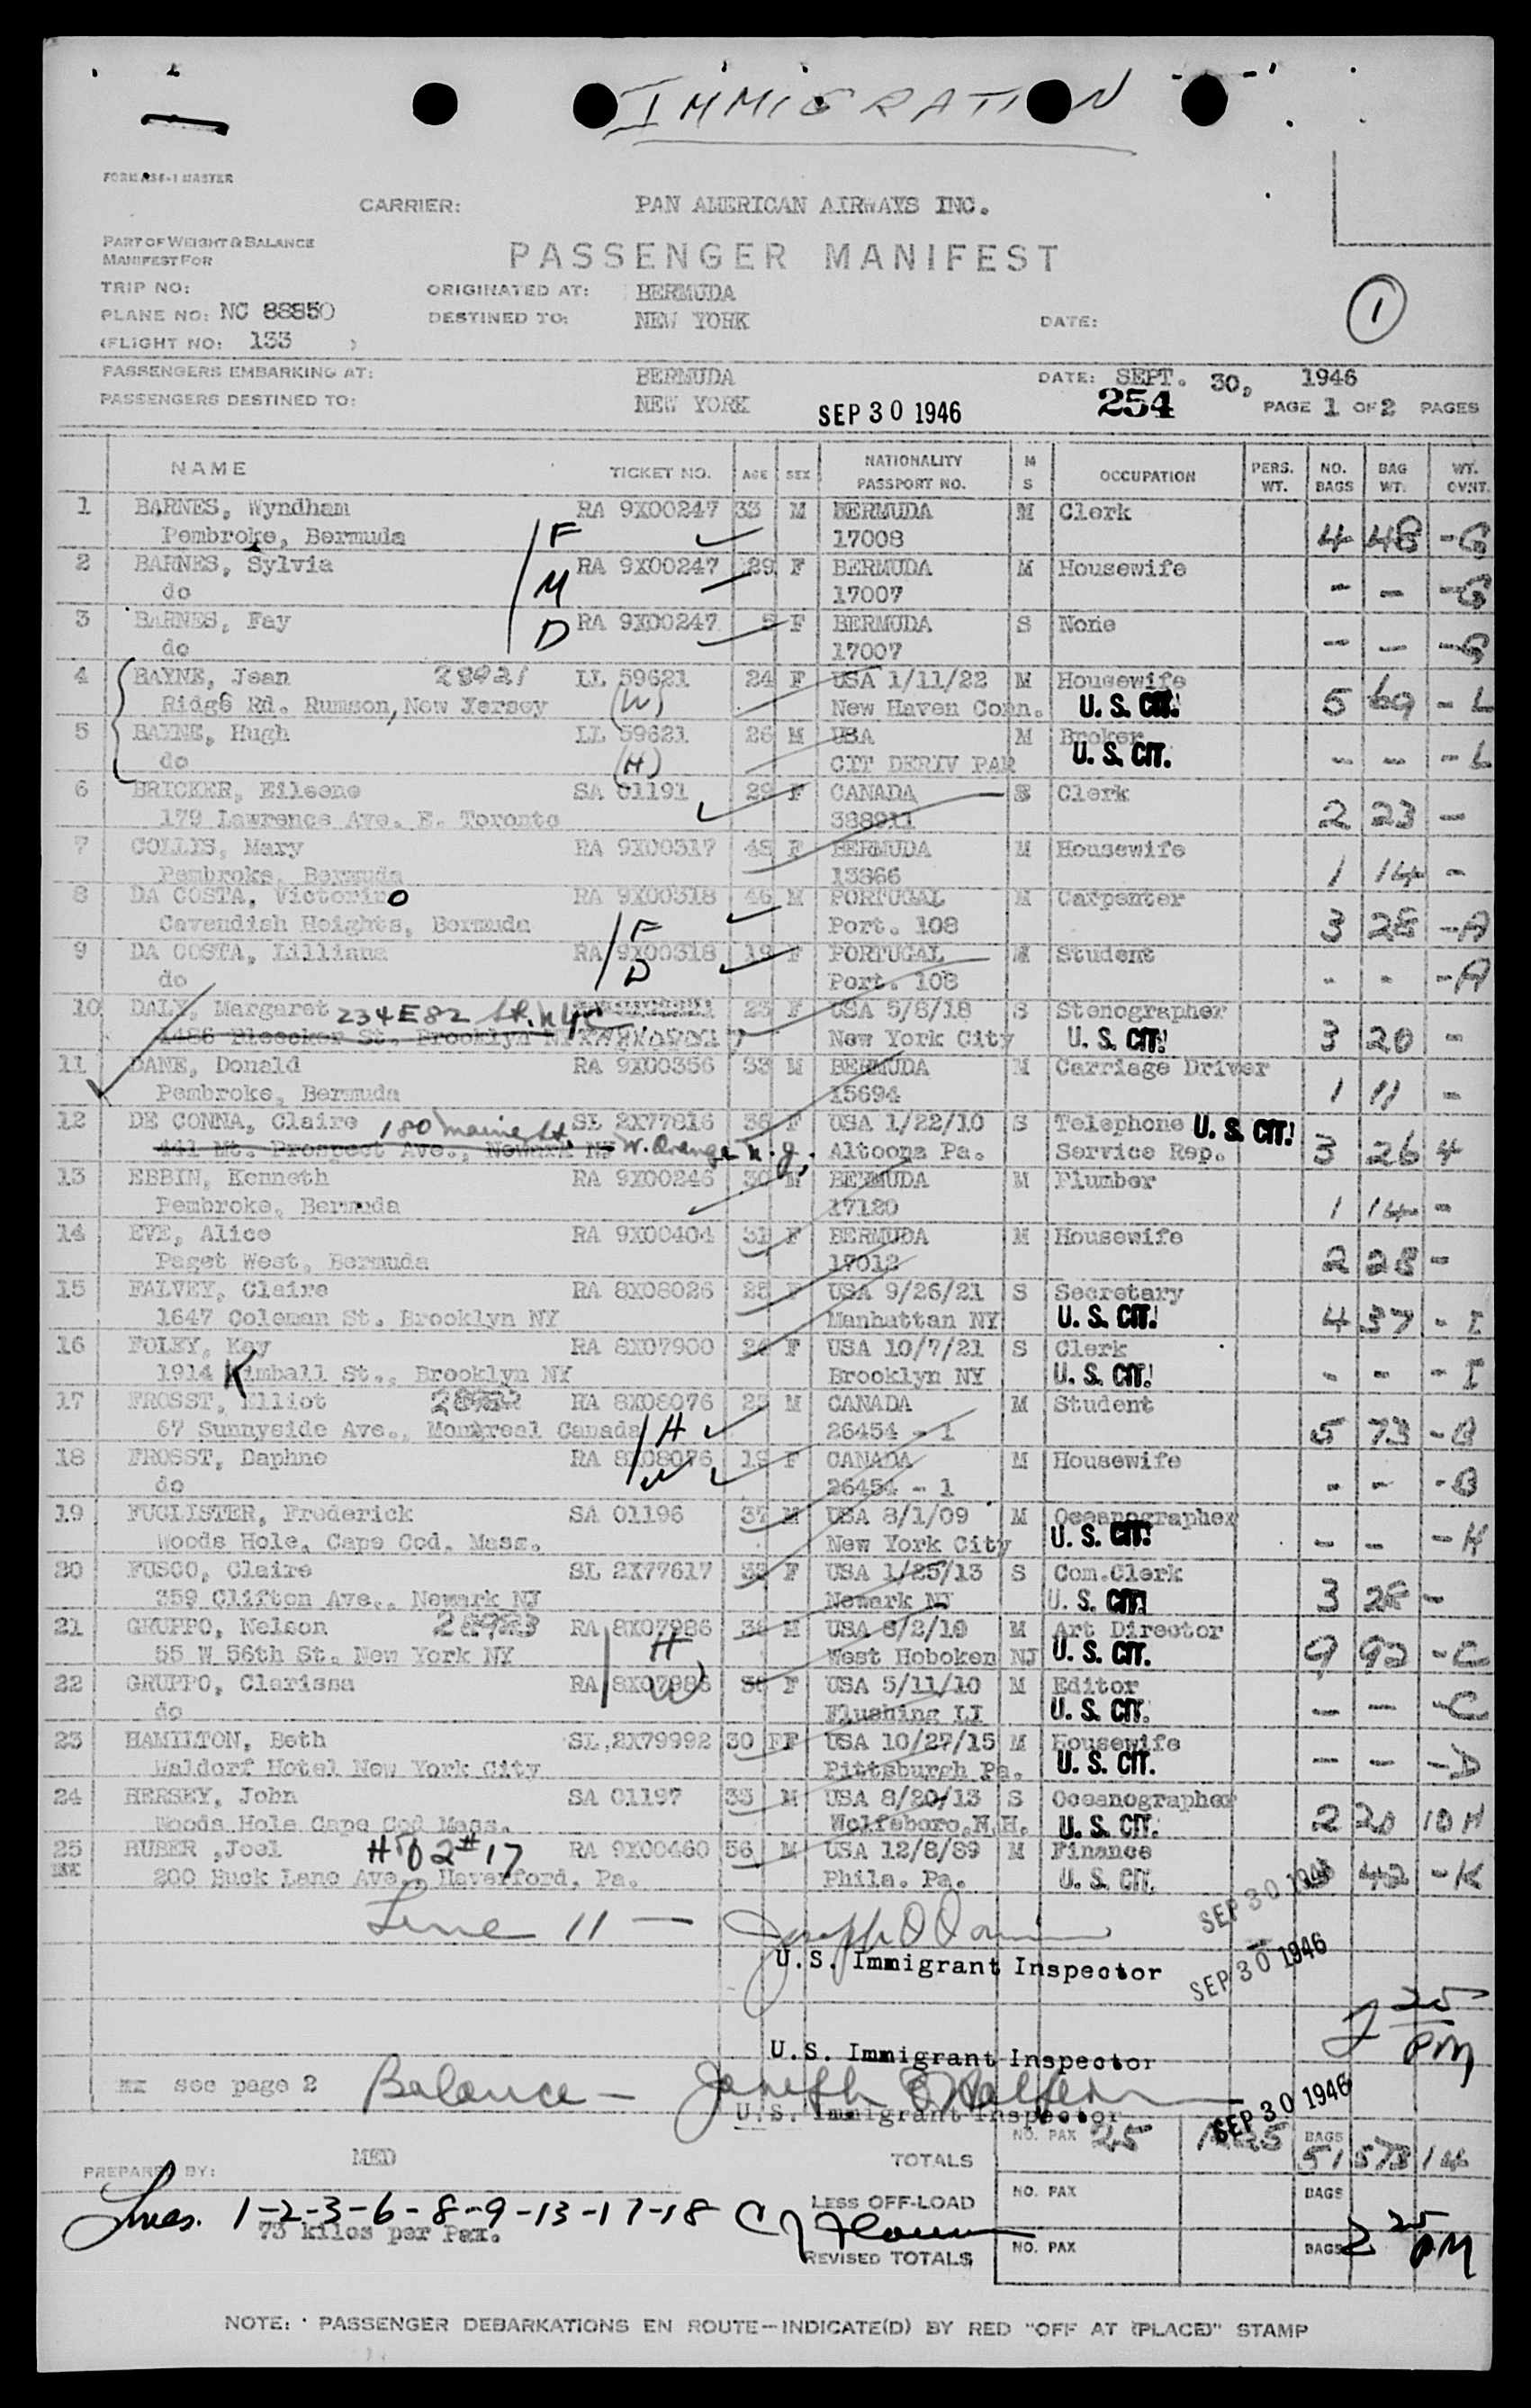 IMMIGRATION
FORM ASE-1 MASTER
CARRIER: PAN AMERICAN AIRWAYS INC.
PART OF WEIGHT & BALANCE
MANIFEST FOR
PASSENGER MANIFEST
TRIP NO: ORIGINATED AT: BERMUDA
PLANE NO: NC 88850 DESTINED TO: NEW YORK DATE: 1
(FLIGHT NO: 133 )
PASSENGERS EMBARKING AT: BERMUDA DATE: SEPT. 30, 1946
PASSENGERS DESTINED TO: NEW YORK SEP 30 1946 254 PAGE 1 OF 2 PAGES
NAME TICKET NO. AGE SEX NATIONALITY PASSPORT NO. M S OCCUPATION PERS. WT. NO. BAGS BAG WT. WT. OVNT.
1 BARNES, Wyndham RA 9X00247 33 M BERMUDA M Clerk
Pembroke, Bermuda F 17008 4 48 - G
2 BARNES, Sylvia RA 9X00247 29 F BERMUDA M Housewife
do M 17007 - - - G
3 BARNES, Fay RA 9X00247 F BERMUDA S None
do D 17007 - - - G
4 BAYNE, Jean LL 59621 24 F USA 1/11/22 M Housewife
Ridge Rd. Rumson, New Jersey (W) New Haven Conn. U. S. CIT. 5 69 - L
5 BAYNE, Hugh LL 59621 26 M USA M Broker
do (H) CIT DERIV PAR U. S. CIT. - - - L
6 BRICKER, Eileene SA 01191 29 F CANADA S Clerk
179 Lawrence Ave. E. Toronto 388911 2 23 -
7 COLLIS, Mary RA 9X00317 48 F BERMUDA M Housewife
Pembroke, Bermuda 13866 1 14 -
8 DA COSTA, Victorino RA 9X00318 46 M PORTUGAL M Carpenter
Cavendish Heights, Bermuda F Port. 108 3 28 - A
9 DA COSTA, Lilliana RA 9X00318 19 F PORTUGAL M Student
do D Port. 108 - - - A
10 DALY, Margaret 234 E 82 St. NYC F USA 5/8/18 S Stenographer
1486 Bleecker St. Brooklyn NY New York City U. S. CIT. 3 20 -
11 DANE, Donald RA 9X00356 33 M BERMUDA M Carriage Driver
Pembroke, Bermuda 15694 1 11 -
12 DE CONNA, Claire 180 Maine St. SL 2X77816 36 F USA 1/22/10 S Telephone U. S. CIT.
441 Mt. Prospect Ave., Newark NJ W. Orange N.J. Altoona Pa. Service Rep. 3 26 4
13 EBBIN, Kenneth RA 9X00246 30 M BERMUDA M Plumber
Pembroke, Bermuda 17120 1 14 -
14 EVE, Alice RA 9X00404 31 F BERMUDA M Housewife
Paget West, Bermuda 17012 2 28 -
15 FALVEY, Claire RA 8X08026 25 F USA 9/26/21 S Secretary
1647 Coleman St. Brooklyn NY Manhattan NY U. S. CIT. 4 37 - I
16 FOLEY, Kay RA 8X07900 24 F USA 10/7/21 S Clerk
1914 Kimball St., Brooklyn NY Brooklyn NY U. S. CIT. - - - I
17 FROSST, Elliot RA 8X08076 25 M CANADA M Student
67 Sunnyside Ave., Montreal Canada H 26454 - 1 5 73 - B
18 FROSST, Daphne RA 8X08076 19 F CANADA M Housewife
do W 26454 - 1 - - - B
19 FUGLISTER, Frederick SA 01196 37 M USA 8/1/09 M Oceanographer
Woods Hole, Cape Cod, Mass. New York City U. S. CIT. - - - H
20 FUSCO, Claire SL 2X77617 33 F USA 1/25/13 S Com.Clerk
359 Clifton Ave., Newark NJ Newark NJ U. S. CIT. 3 28 -
21 GRUPPO, Nelson RA 8X07986 M USA 8/2/10 M Art Director
55 W 56th St. New York NY H West Hoboken NJ U. S. CIT. 9 92 - C
22 GRUPPO, Clarissa RA 8X07986 F USA 5/11/10 M Editor
do W Flushing LI U. S. CIT. - - - C
23 HAMILTON, Beth SL 2X79992 30 FF USA 10/27/15 M Housewife
Waldorf Hotel New York City Pittsburgh Pa. U. S. CIT. - - - D
24 HERSEY, John SA 01197 33 M USA 8/20/13 S Oceanographer
Woods Hole Cape Cod Mass. Wolfeboro,N.H. U. S. CIT. 2 20 10 H
25 HUBER ,Joel RA 9X00460 56 M USA 12/8/89 M Finance
200 Buck Lane Ave., Haverford, Pa. Phila. Pa. U. S. CIT. 42 - K
SEP 30 1946
Line 11 —
U.S. Immigrant Inspector
SEP 30 1946
2 25 PM
U.S. Immigrant Inspector
xx see page 2 Balance — Joseph
U.S. Immigrant Inspector SEP 30 1946
TOTALS NO. PAX 25 BAGS 51 578 14
PREPARED BY: MED
LESS OFF-LOAD NO. PAX BAGS
Lines. 1-2-3-6-8-9-13-17-18
73 kilos per Pax.
REVISED TOTALS NO. PAX BAGS 2 25 PM
NOTE: PASSENGER DEBARKATIONS EN ROUTE—INDICATE(D) BY RED "OFF AT (PLACE)" STAMP